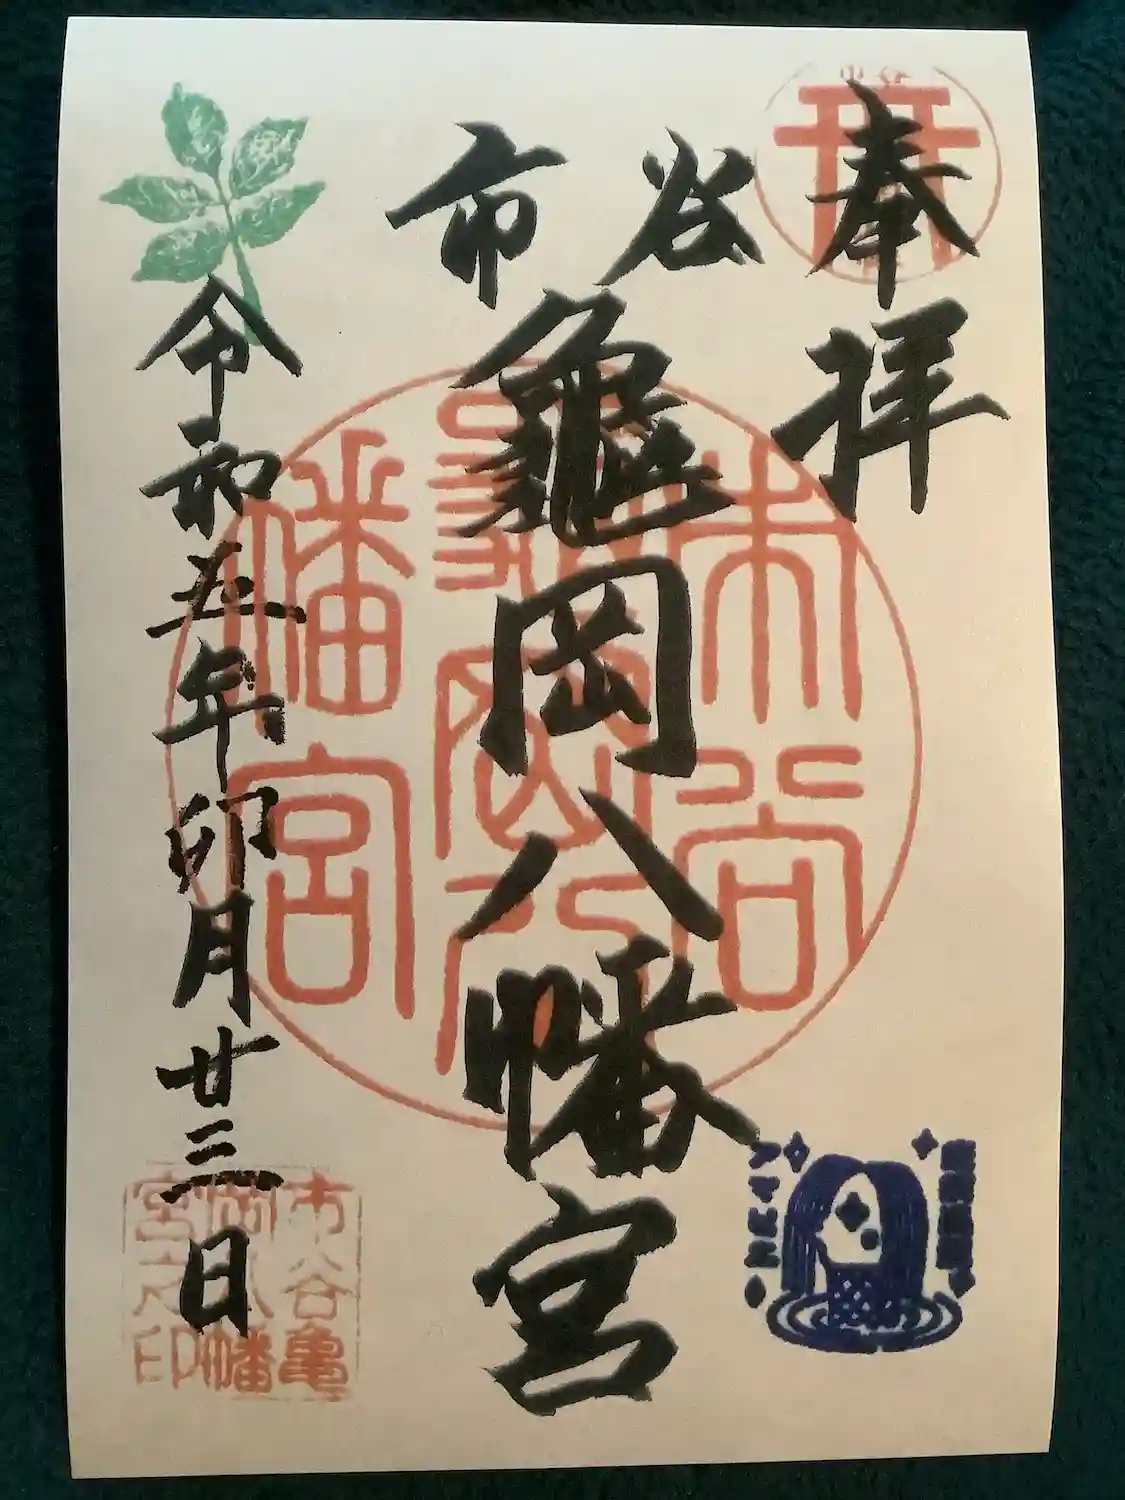 奉拝
市谷
亀岡八幡宮
令和五年卯月廿三日
市谷
亀岡八
幡宮
市谷亀
岡八幡
宮之印